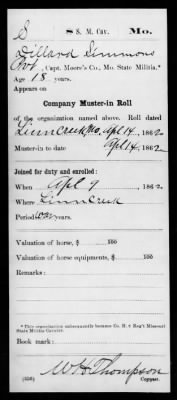 S 8 S. M. Cav. Mo.
Dillard Simmons
Pvt, Capt. Moore's Co., Mo. State Militia.*
Age 18 years.
Appears on
Company Muster-in Roll
of the organization named above. Roll dated
Linn Creek, Mo, Apl 14, 1862
Muster-in to date Apl 14, 1862
Joined for duty and enrolled:
When Apl 9, 1862.
Where Linn Creek
Period war years.
Valuation of horse, $ 100
Valuation of horse equipments, $ 100
Remarks:
*This organization subsequently became Co. Reg't Missouri
State Militia Cavalry.
Book mark:
W H Thompson
(356) Copyist.